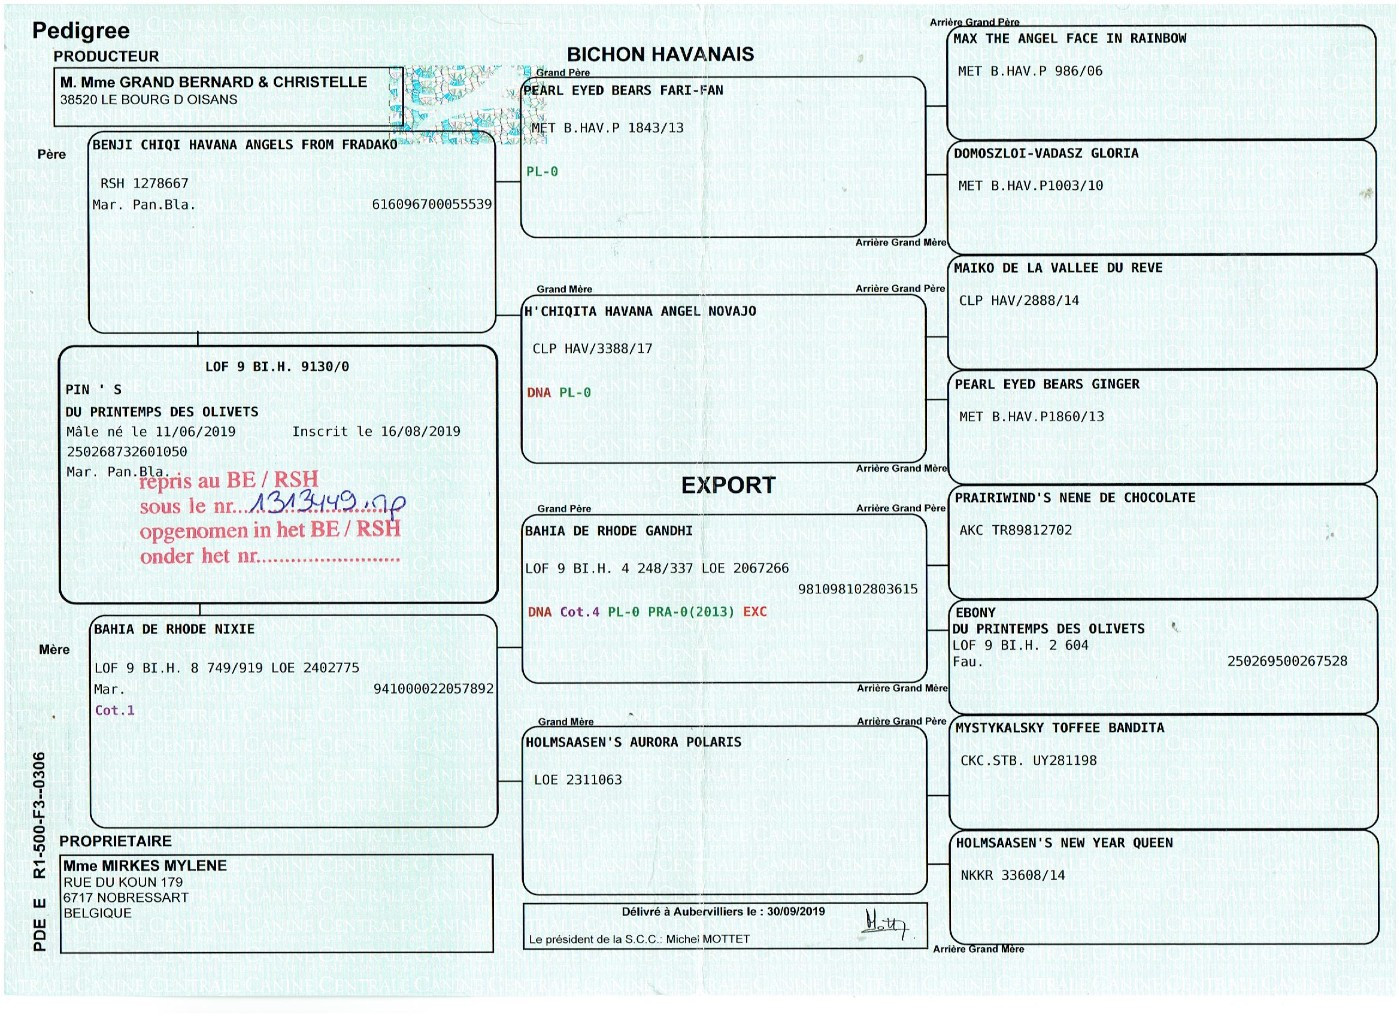 Pedigree
PRODUCTEUR
M. Mme GRAND BERNARD & CHRISTELLE
38520 LE BOURG D OISANS
BICHON HAVANAIS
Père
BENJI CHIQI HAVANA ANGELS FROM FRADAKO
RSH 1278667
Mar. Pan.Bla. 616096700055539
LOF 9 BI.H. 9130/0
PIN ' S
DU PRINTEMPS DES OLIVETS
Mâle né le 11/06/2019 Inscrit le 16/08/2019
250268732601050
Mar. Pan.Bla.
repris au BE / RSH
sous le nr...1313449.np
opgenomen in het BE / RSH
onder het nr..........................
Mère
BAHIA DE RHODE NIXIE
LOF 9 BI.H. 8 749/919 LOE 2402775
Mar. 941000022057892
Cot.1
PROPRIETAIRE
Mme MIRKES MYLENE
RUE DU KOUN 179
6717 NOBRESSART
BELGIQUE
PDE E R1-500-F3--0306
Grand Père
PEARL EYED BEARS FARI-FAN
MET B.HAV.P 1843/13
PL-0
Grand Mère
H'CHIQITA HAVANA ANGEL NOVAJO
CLP HAV/3388/17
DNA PL-0
EXPORT
Grand Père
BAHIA DE RHODE GANDHI
LOF 9 BI.H. 4 248/337 LOE 2067266
981098102803615
DNA Cot.4 PL-0 PRA-0(2013) EXC
Grand Mère
HOLMSAASEN'S AURORA POLARIS
LOE 2311063
Délivré à Aubervilliers le : 30/09/2019
Le président de la S.C.C.: Michel MOTTET
Arrière Grand Père
MAX THE ANGEL FACE IN RAINBOW
MET B.HAV.P 986/06
DOMOSZLOI-VADASZ GLORIA
MET B.HAV.P1003/10
Arrière Grand Mère
Arrière Grand Père
MAIKO DE LA VALLEE DU REVE
CLP HAV/2888/14
PEARL EYED BEARS GINGER
MET B.HAV.P1860/13
Arrière Grand Mère
Arrière Grand Père
PRAIRIWIND'S NENE DE CHOCOLATE
AKC TR89812702
EBONY
DU PRINTEMPS DES OLIVETS
LOF 9 BI.H. 2 604
Fau. 250269500267528
Arrière Grand Mère
Arrière Grand Père
MYSTYKALSKY TOFFEE BANDITA
CKC.STB. UY281198
HOLMSAASEN'S NEW YEAR QUEEN
NKKR 33608/14
Arrière Grand Mère